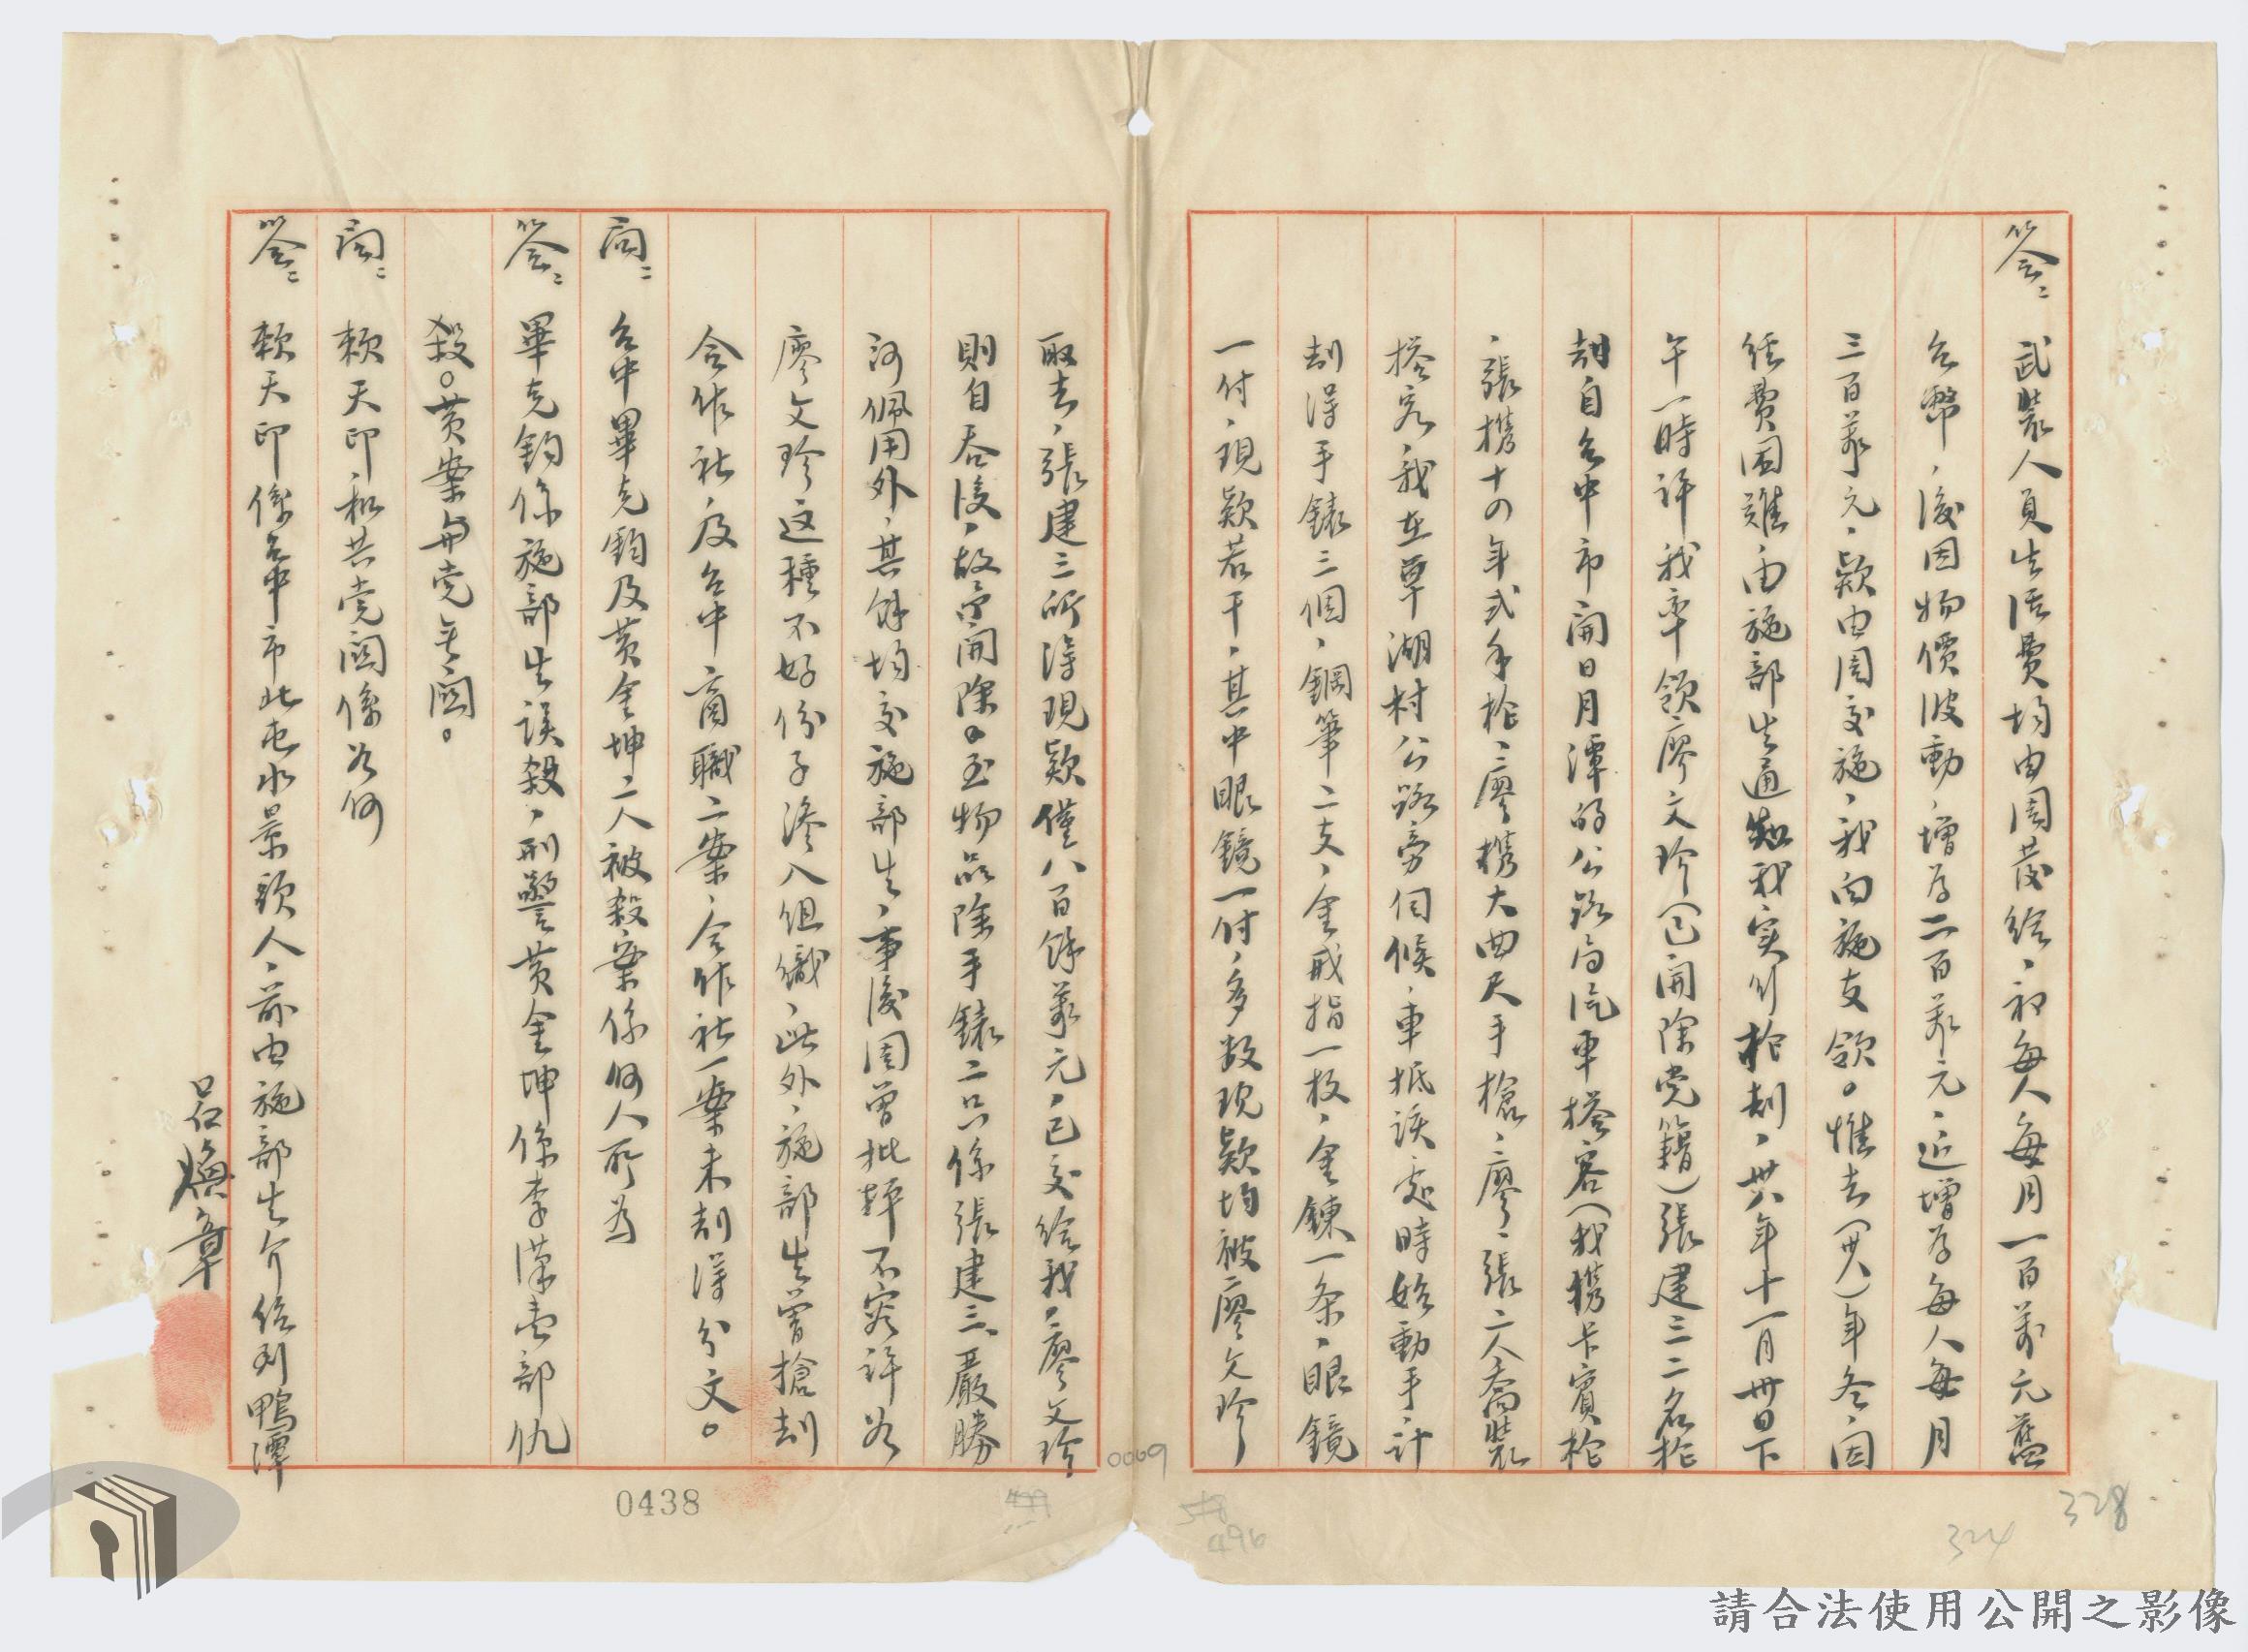 答：武裝人員生活費均由周發給，初每人每月一百萬元舊
台幣，後因物價波動，增为二百萬元，近增为每人每月
三百萬元，欵由周交施，我向施支領。惟去（卅八）年冬，因
經費困难，由施部生通知我实行枪劫，卅八年十一月卅日下
午一時許我率領廖文珍（已開除党籍）張建三二名枪
劫自台中市開日月潭的公路局汽車搭客（我携卡賓枪
，張携十四年式手枪，廖携大曲尺手槍，廖、張二人喬裝
搭客，我在草湖村公路旁伺候，車抵該处時始動手，計
劫得手錶三個，鋼筆二支，金戒指一枚，金鍊一条，眼鏡
一付，現欵若干，其中眼鏡一付，多数現欵均被廖文珍
取去，張建三所得現欵僅八百餘萬元，已交給我，廖文珍
則自吞沒，故予開除。至物品除手錶二只係張建三、嚴勝
河佩用外，其餘均交施部生，事後周曾批評不容許为
廖文珍这種不好份子滲入組織，此外，施部生曾槍劫
合作社，及台中商職二案，合作社一案未劫得分文。
问：台中畢克鈞及黃金坤二人被殺案係何人所为
答：畢克鈞係施部生誤殺，刑警黃金坤係李漢堂部仇
殺。黃案與党无関。
问：賴天印，和共党関係为何
答：賴天印係台中市北屯水景頭人，前由施部生介绍到鴨潭
呂煥章
0438
0009
496
324
328
請合法使用公開之影像